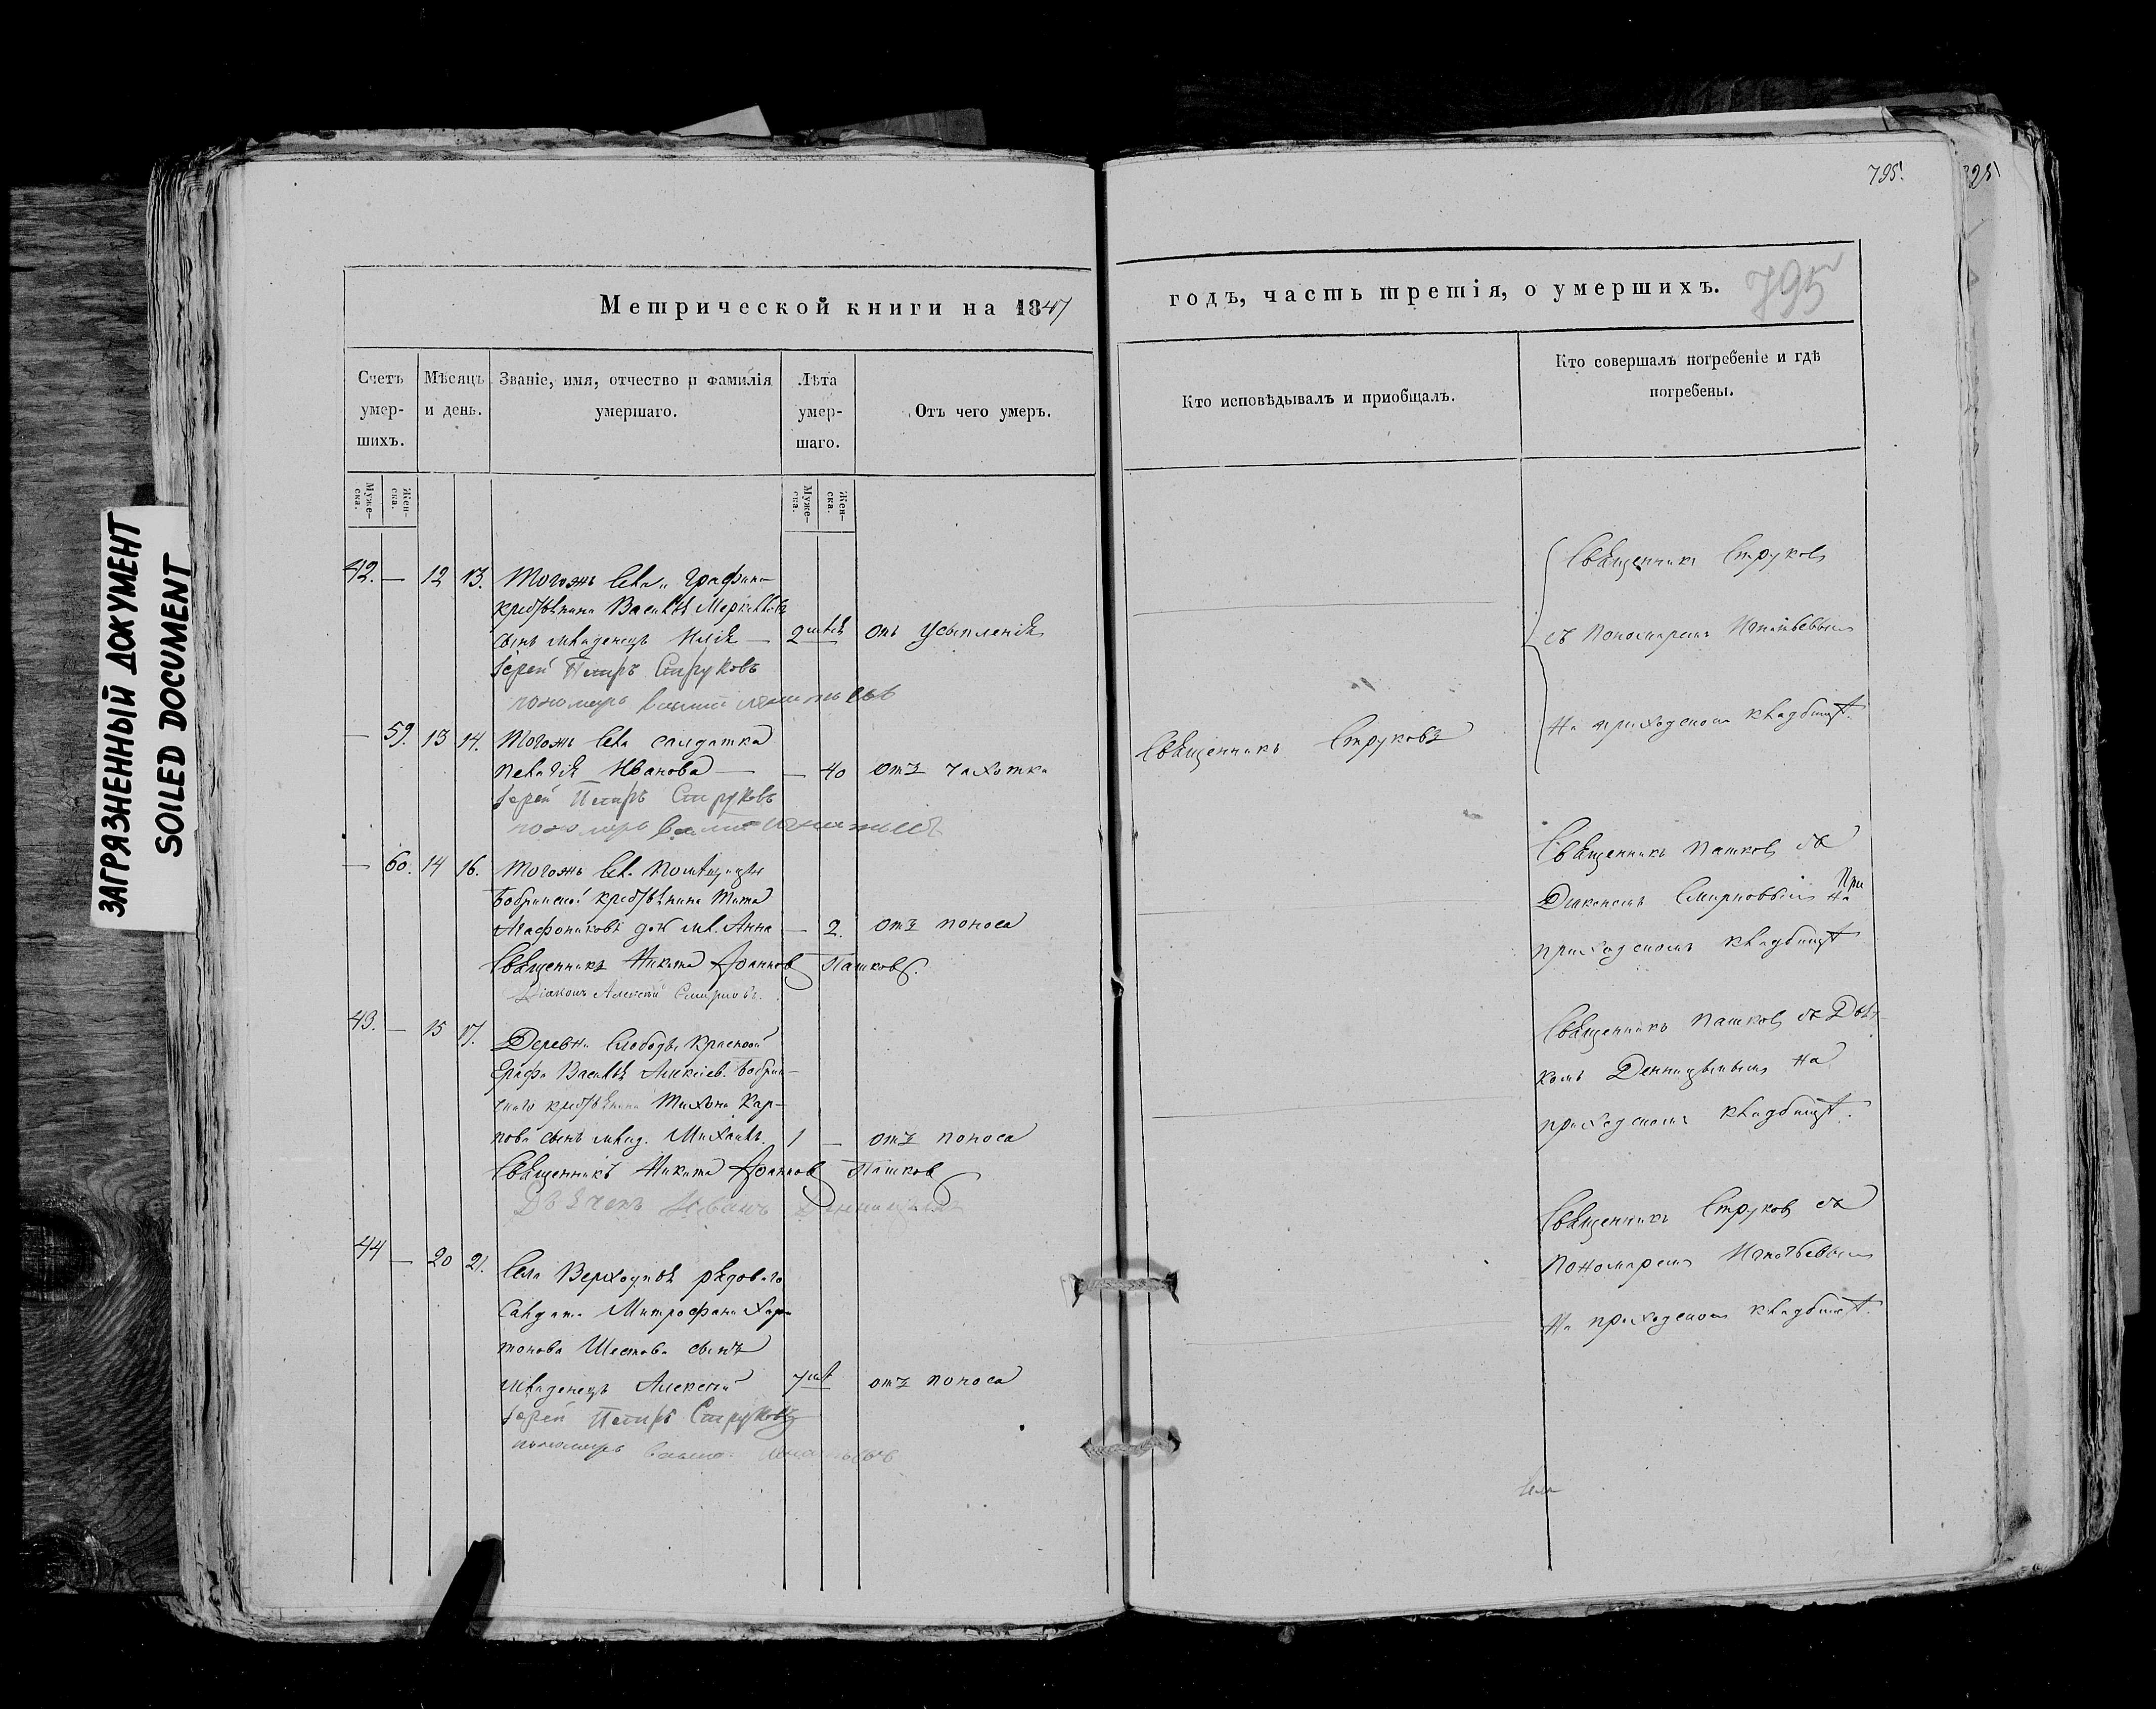 795.
ЗАГРЯЗНЕННЫЙ ДОКУМЕНТ
SOILED DOCUMENT
Метрической книги на 1847
годъ, часть третія, о умершихъ.
795
Счетъ умер-шихъ.
Мѣсяцъ и день.
Званіе, имя, отчество и фамилія умершаго.
Лѣта умер-шаго.
Отъ чего умеръ.
Кто исповѣдывалъ и приобщалъ.
Кто совершалъ погребеніе и гдѣ погребены.
Муже-ска.
Жен-ска.
Муже-ска.
Жен-ска.
42. — 12 13. Тогожъ села
крестьянина Василья
сынъ младенецъ Илія — 2
Іерей Петръ Струковъ
пономарь
Священникъ Струковъ
съ Пономаремъ Игнатьевымъ
На приходскомъ кладбищѣ.
— 59. 13 14. Тогожъ села салдатка
Пелагія Иванова — — 40 отъ чахотки
Іерей Петръ Струковъ
пономарь
Священникъ Струковъ
— 60. 14 16. Тогожъ села помѣщицы
Бобринской крестьянина Тита
Агафоникова дочь мл. Анна — 2. отъ поноса
Священникъ Никита Іоанновъ Пашковъ.
Діаконъ Алексѣй Смирновъ.
Священникъ Пашковъ съ
Діакономъ Смирновымъ На
При
приходскомъ кладбищѣ
43. — 15 17. Деревни Слободы Красной
Графа Василья Алексѣев. Бобрин-
скаго крестьянина Тихона Кар-
пова сынъ млад. Михаилъ. 1 — отъ поноса
Священникъ Никита Іоанновъ Пашковъ
Дьячекъ Иванъ Денницынъ
Священникъ Пашковъ съ Дьяч-
комъ Денницынымъ на
приходскомъ кладбищѣ.
44 — 20 21. Села рядоваго
Салдата Митрофана Хари-
тонова Шестова сынъ
младенецъ Алексѣй 7 отъ поноса
Іерей Петръ Струковъ
пономарь
Священникъ Струковъ съ
Пономаремъ Игнатьевымъ
На приходскомъ кладбищѣ.